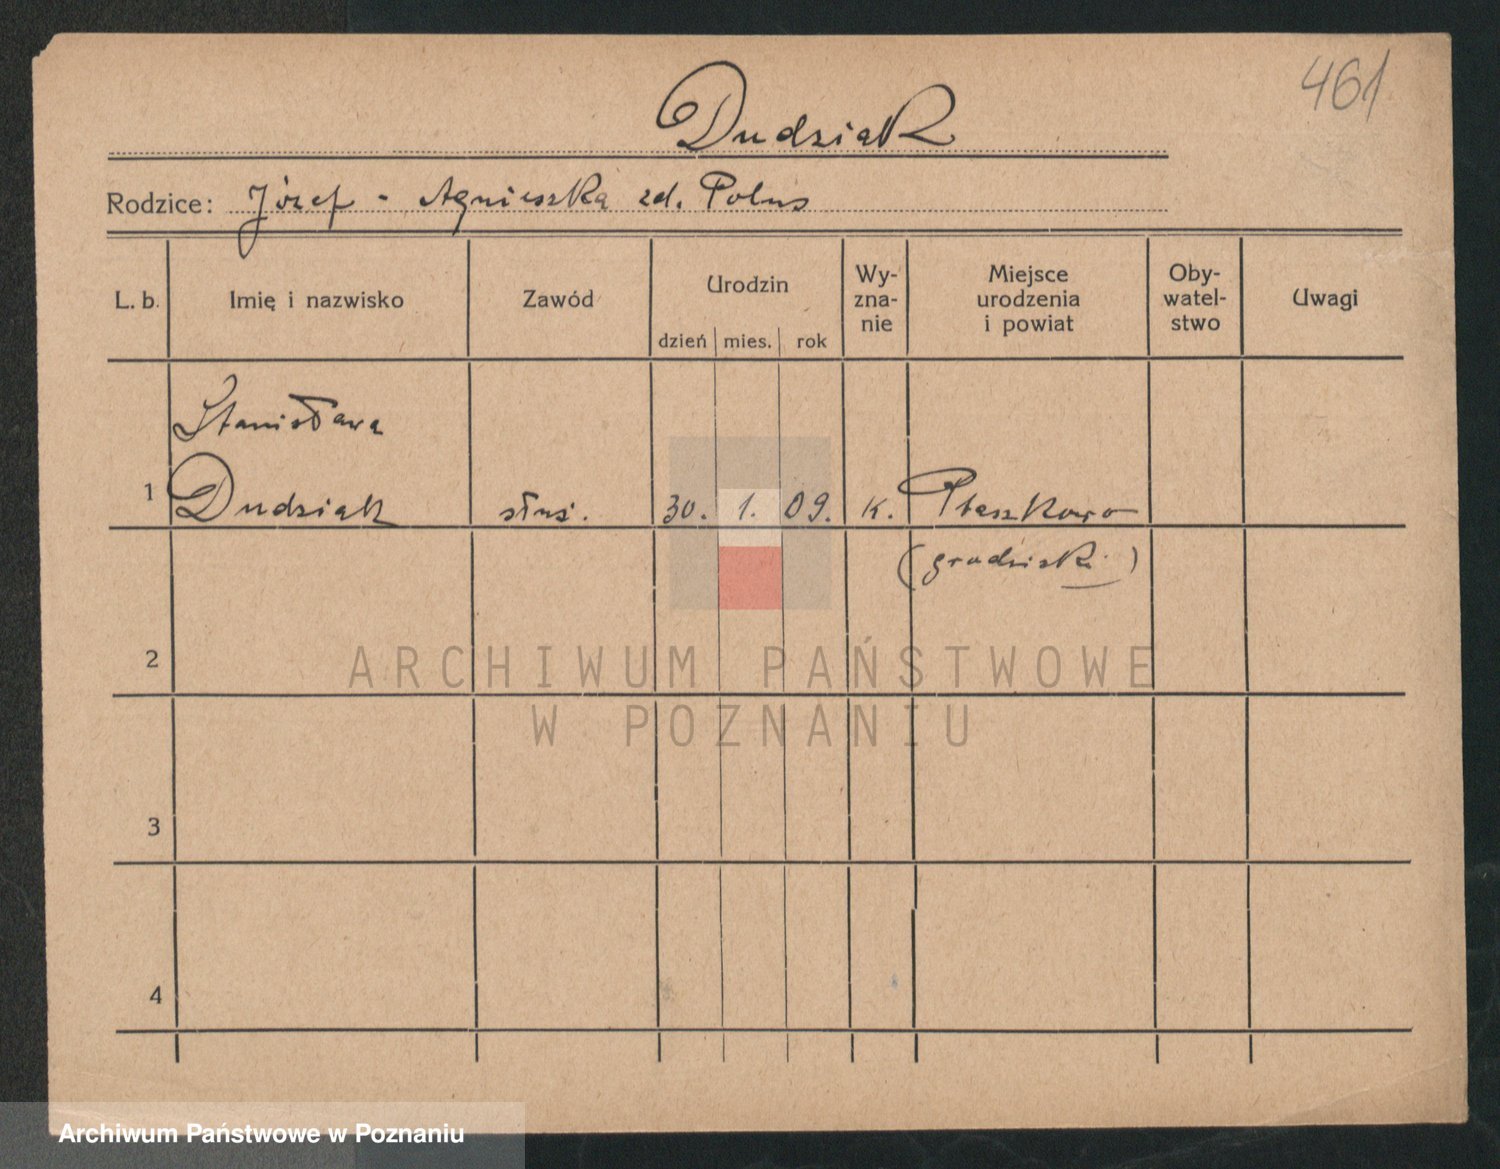 461
Dudziak
Rodzice: Józef - Agnieszka zd. Polus
L. b. Imię i nazwisko Zawód Urodzin dzień mies. rok Wy-zna-nie Miejsce urodzenia i powiat Oby-watel-stwo Uwagi
Stanisława
1 Dudziak służ. 30. 1. 09. k. Ptaszkowo
(grodziski)
2
ARCHIWUM PAŃSTWOWE
W POZNANIU
3
4
Archiwum Państwowe w Poznaniu